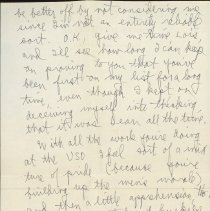 be better off by not considering me
since I'm not an entirely reliable
sort. O.K., give me time Lois,
and I'll see how long I can keep
on proving to you that you've
been first on my list for a long
time, even though I kept on
deceiving myself into thinking
that it was Dean all the time.
With all the work you're doing
at the USO I feel sort of a mix
ture of pride (because you're
building up the men's morale)
and then a little apprehension,